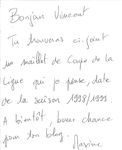 Bonjour Vincent
Tu trouveras ci-joint
un maillot de Coupe de la
Ligue qui je pense, date
de la saison 1998/1999
A bientôt, bonne chance
pour ton blog.
Maxime